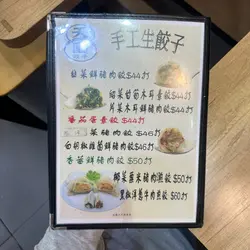 手工生餃子
白菜鮮豬肉餃$44/打
韮菜甘筍木耳素餃$44/打
芹菜木耳鮮豬肉餃$44/打
番茄蛋素餃$44/打
菜豬肉餃$46/打
白胡椒雜菌鮮豬肉餃$46/打
香茜鮮豬肉餃$50/打
椰菜粟米豬肉煎餃$50/打
黑椒洋蔥牛肉煎餃$60/打